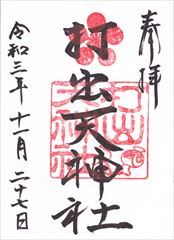 奉拝
打出天神社
令和三年十一月二十七日